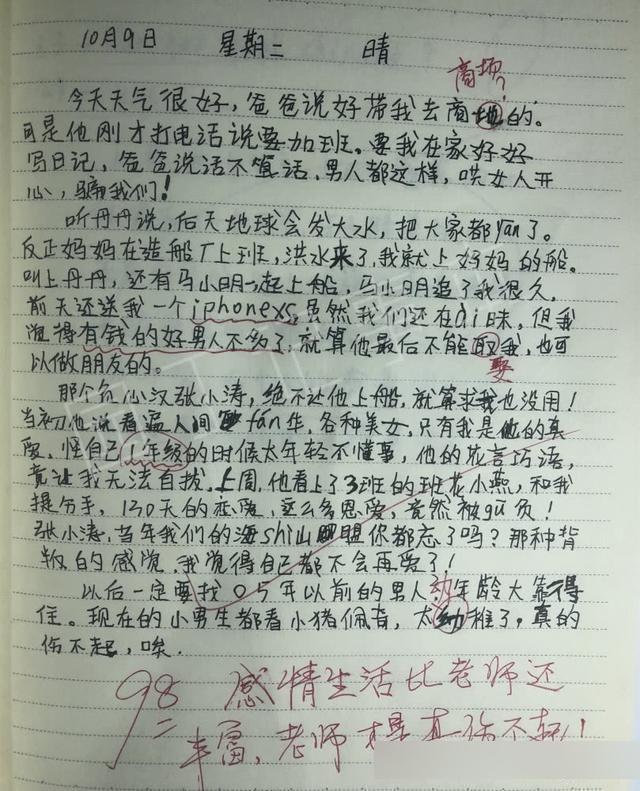 10月9日 星期二 晴
商场?
今天天气很好,爸爸说好带我去商的。
可是他刚才打电话说要加班。要我在家好好
写日记,爸爸说话不算话,男人都这样,哄女人开
心,骗我们!
听丹丹说,后天地球会发大水,把大家都yan了。
反正妈妈在造船厂上班,洪水来了,我就上妈妈的船。
叫上丹丹,还有马小明一起上船,马小明追了我很久,
前天还送我一个iphonexs,虽然我们还在ai昧,但我
觉得有钱的好男人不多了,就算他最后不能取我,也可
娶
以做朋友的。
那个负心汉张小涛,绝不让他上船,就算求我也没用!
当初他说看遍人间fan华,各种美女,只有我是他的真
爱,怪自己1年级的时候太年轻不懂事,他的花言巧语,
竟让我无法自拔,上周,他看上了3班的班花小燕,和我
提分手,130天的恋爱,这么多恩爱,竟然被gu负!
张小涛,当年我们的海shi山盟你都忘了吗?那种背
叛的感觉,我觉得自己都不会再爱了!
以后一定要找05年以前的男人,年龄大靠得
住。现在的小男生都看小猪佩奇,太幼稚了,真的
伤不起,唉.
98 感情生活比老师还
丰富,老师才是真伤不起!!